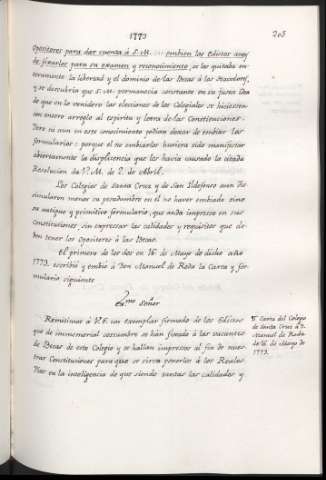 1773
203
Opositores para dar cuenta à S.M. embien los Edictos antes
de fixarlos para su examen y reconocimiento, se les quitaba en-
teramente la libertad y el dominio de las Becas à los Hacedores,
y se descubria que S.M. permanecia constante en su justa Idea
de que en lo venidero las elecciones de los Colegiales se hiciesen
con entero arreglo al espiritu y letra de las Constituciones.
Pero ni aun en este conocimiento podian dexar de embiar los
formularios: porque el no embiarlos huviera sido manifestar
abiertamente la displicencia que les havia causado la citada
Resolucion de V.M. de 2 de Abril.
Los Colegios de Santa Cruz y de San Ildefonso aun di-
simularon menos su pesadumbre en el no haver embiado sino
su antiguo y primitivo formulario, que anda impreso en sus
Constituciones, sin expresar las calidades y requisitos que de-
ben tener los Opositores à las Becas.
El primero de los dos en 16 de Mayo de dicho año
1773, escribió y embió à Don Manuel de Roda la Carta y for-
mulario siguiente
Exmo Señor
Remitimos à V.E. un exemplar firmado de los Edictos
que de immemorial costumbre se han fixado à las vacantes
de Becas de este Colegio y se hallan impresos al fin de nues-
tras Constituciones para que se sirva ponerlos à los Reales
Pies en la inteligencia de que siendo tantas las calidades y
Carta del Colegio
de Santa Cruz à D.
Manuel de Roda
de 16 de Mayo de
1773.